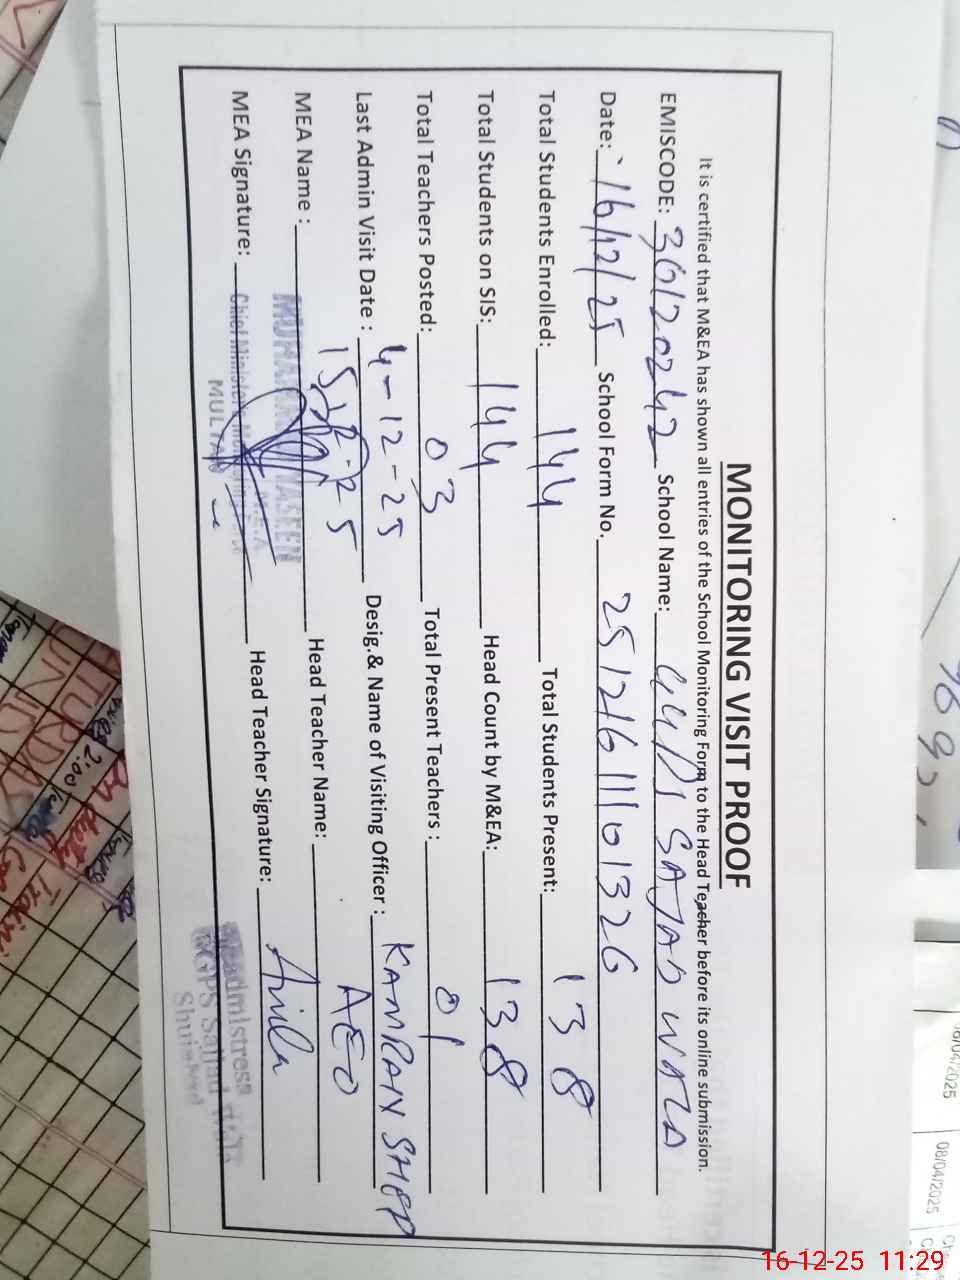 MONITORING VISIT PROOF
It is certified that M&EA has shown all entries of the School Monitoring Form to the Head Teacher before its online submission.
EMISCODE: 36120242 School Name: GGPS SAJAD WALA
Date: 16/12/25 School Form No. 251216111101326
Total Students Enrolled: 144 Total Students Present: 138
Total Students on SIS: 144 Head Count by M&EA: 138
Total Teachers Posted: 03 Total Present Teachers : 01
Last Admin Visit Date : 4-12-25 Desig.& Name of Visiting Officer : KAMRAN
AEO
MEA Name : Head Teacher Name:
MEA Signature: Head Teacher Signature: Anila
MULTAN
Headmistress
GGPS Sajjad Wala
08/04/2025
08/04/2025
16-12-25 11:29